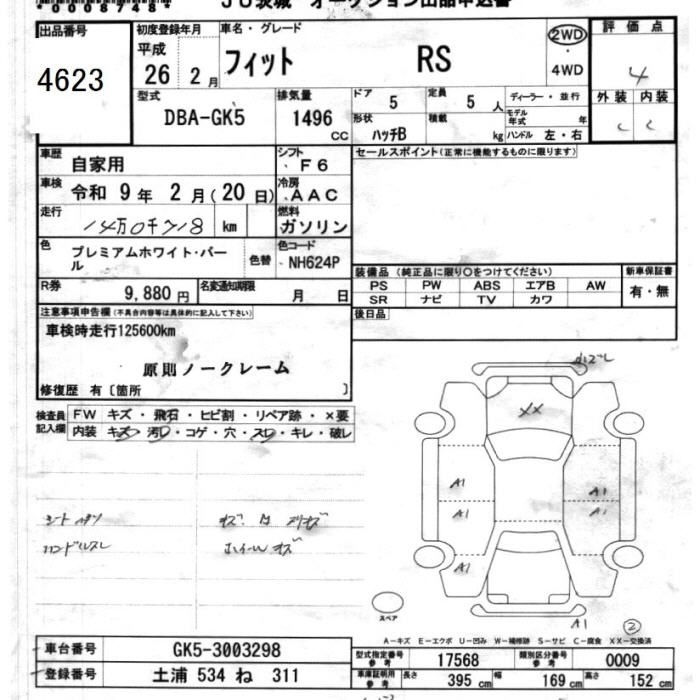 *00087484*
JU茨城 オークション出品申込書
出品番号
4623
初度登録年月
平成
26年 2月
車名・グレード
フィット RS
2WD
・
4WD
評価点
4
外装 内装
C C
型式
DBA-GK5
排気量
1496 CC
ドア 5
定員 5 人
形状 ハッチB
積載 kg
ディーラー・並行
モデル年式 年
ハンドル 左・右
車歴 自家用
シフト F6
セールスポイント(正常に機能するものに限ります)
車検 令和 9年 2月(20日)
冷房 AAC
走行 14万0千718 km
燃料 ガソリン
色 プレミアムホワイト・パール
色替
色コード NH624P
R券 9,880円
名変通知期限 月 日
装備品 (純正品に限り○をつけてください)
PS PW ABS エアB AW
SR ナビ TV カワ
新車保証書
有・無
後日品
注意事項申告欄(不具合内容等は具体的に記入して下さい)
車検時走行125600km
原則ノークレーム
修復歴 有〔箇所 〕
検査員記入欄
FW キズ・飛石・ヒビ割・リペア跡・×要
内装 キズ・汚レ・コゲ・穴・スレ・キレ・破レ
ハンドルスレ
ホイールキズ
XX
A1
A1
A1
A1
A1
A1
スペア
②
A-キズ E-エクボ U-凹み W-補修跡 S-サビ C-腐食 XX-交換済
車台番号 GK5-3003298
登録番号 土浦 534 ね 311
型式指定番号 参考 17568
類別区分番号 参考 0009
車庫証明用 参考 長さ 395 cm 幅 169 cm 高さ 152 cm